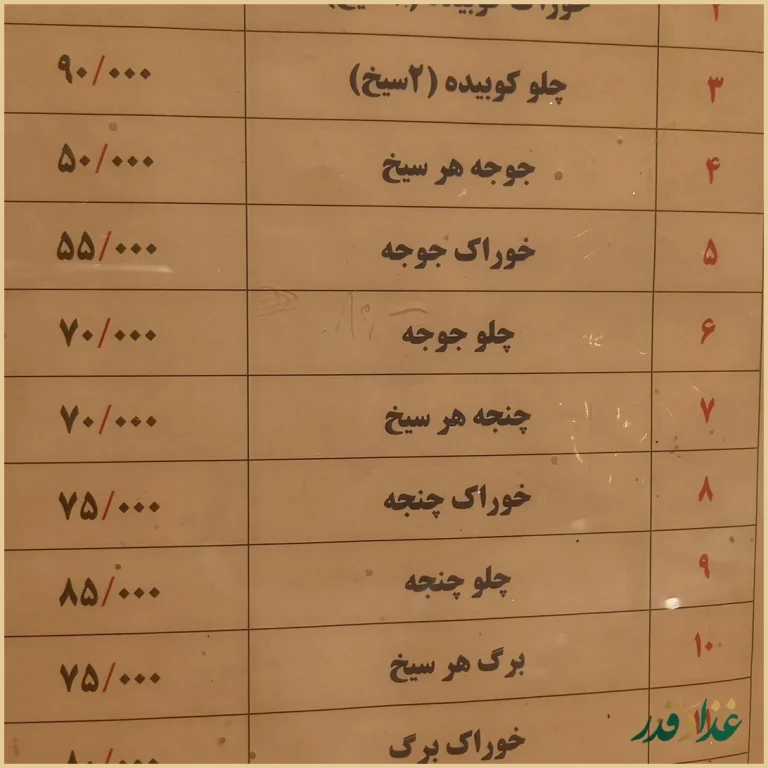 ۲ خوراک کوبیده
۳ چلو کوبیده (۲سیخ) ۹۰/۰۰۰
۴ جوجه هر سیخ ۵۰/۰۰۰
۵ خوراک جوجه ۵۵/۰۰۰
۶ چلو جوجه ۷۰/۰۰۰
۷ چنجه هر سیخ ۷۰/۰۰۰
۸ خوراک چنجه ۷۵/۰۰۰
۹ چلو چنجه ۸۵/۰۰۰
۱۰ برگ هر سیخ ۷۵/۰۰۰
۱۱ خوراک برگ ۸۰/۰۰۰